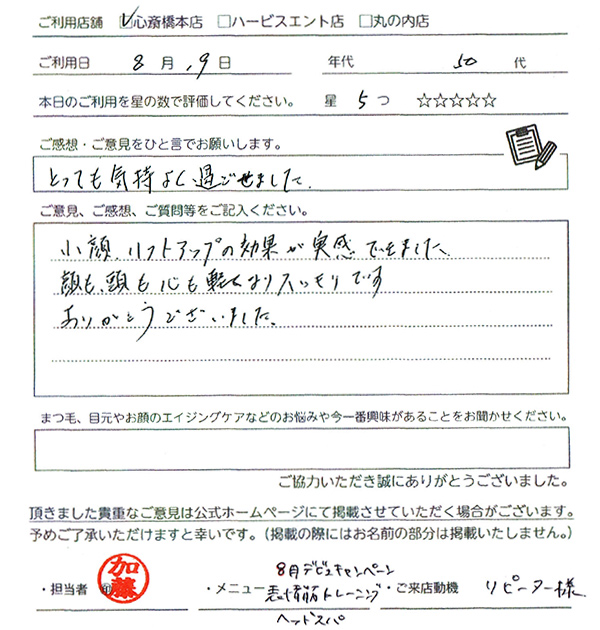 ご利用店舗 ☑心斎橋本店 □ハービスエント店 □丸の内店
ご利用日 8月.9日 年代 50代
本日のご利用を星の数で評価してください。 星 5つ ☆☆☆☆☆
ご感想・ご意見をひと言でお願いします。
とっても気持よく過ごせました.
ご意見、ご感想、ご質問等をご記入ください。
小顔.リフトアップの効果が実感できました.
顔も、頭も心も軽くなりスッキリです
ありがとうございました.
まつ毛、目元やお顔のエイジングケアなどのお悩みや今一番興味があることをお聞かせください。
ご協力いただき誠にありがとうございました。
頂きました貴重なご意見は公式ホームページにて掲載させていただく場合がございます。
予めご了承いただけますと幸いです。(掲載の際にはお名前の部分は掲載いたしません。)
8月デビュキャンペーン
・担当者 加藤 ・メニュー 表情筋トレーニング ・ご来店動機 リピーター様
ヘッドスパ